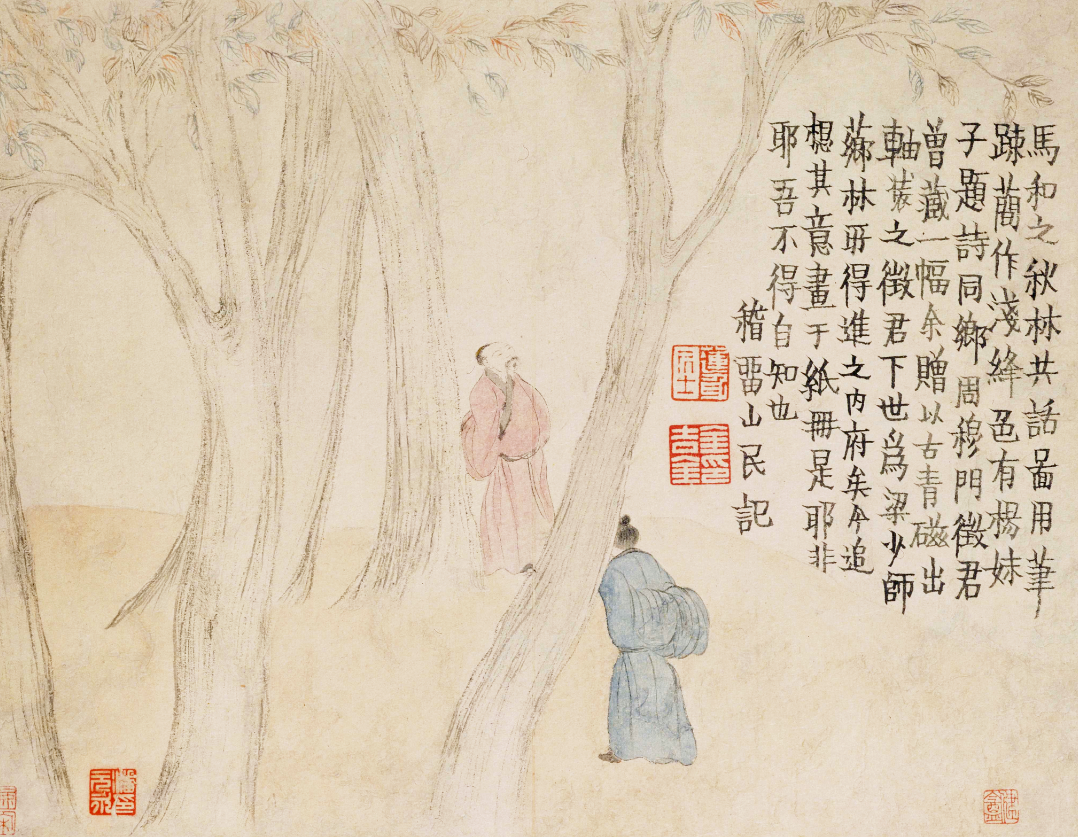 馬和之秋林共話啚用筆
踈蕳作淺絳邑有楊妹
子題詩同鄉周穆門徵君
曽藏一幅余贈以古青磁出
軸裝之徵君下世爲梁少師
薌林所得進之内府矣今追
想其意畫于紙冊是耶非
耶吾不得自知也
稽畱山民記
金吉
金印